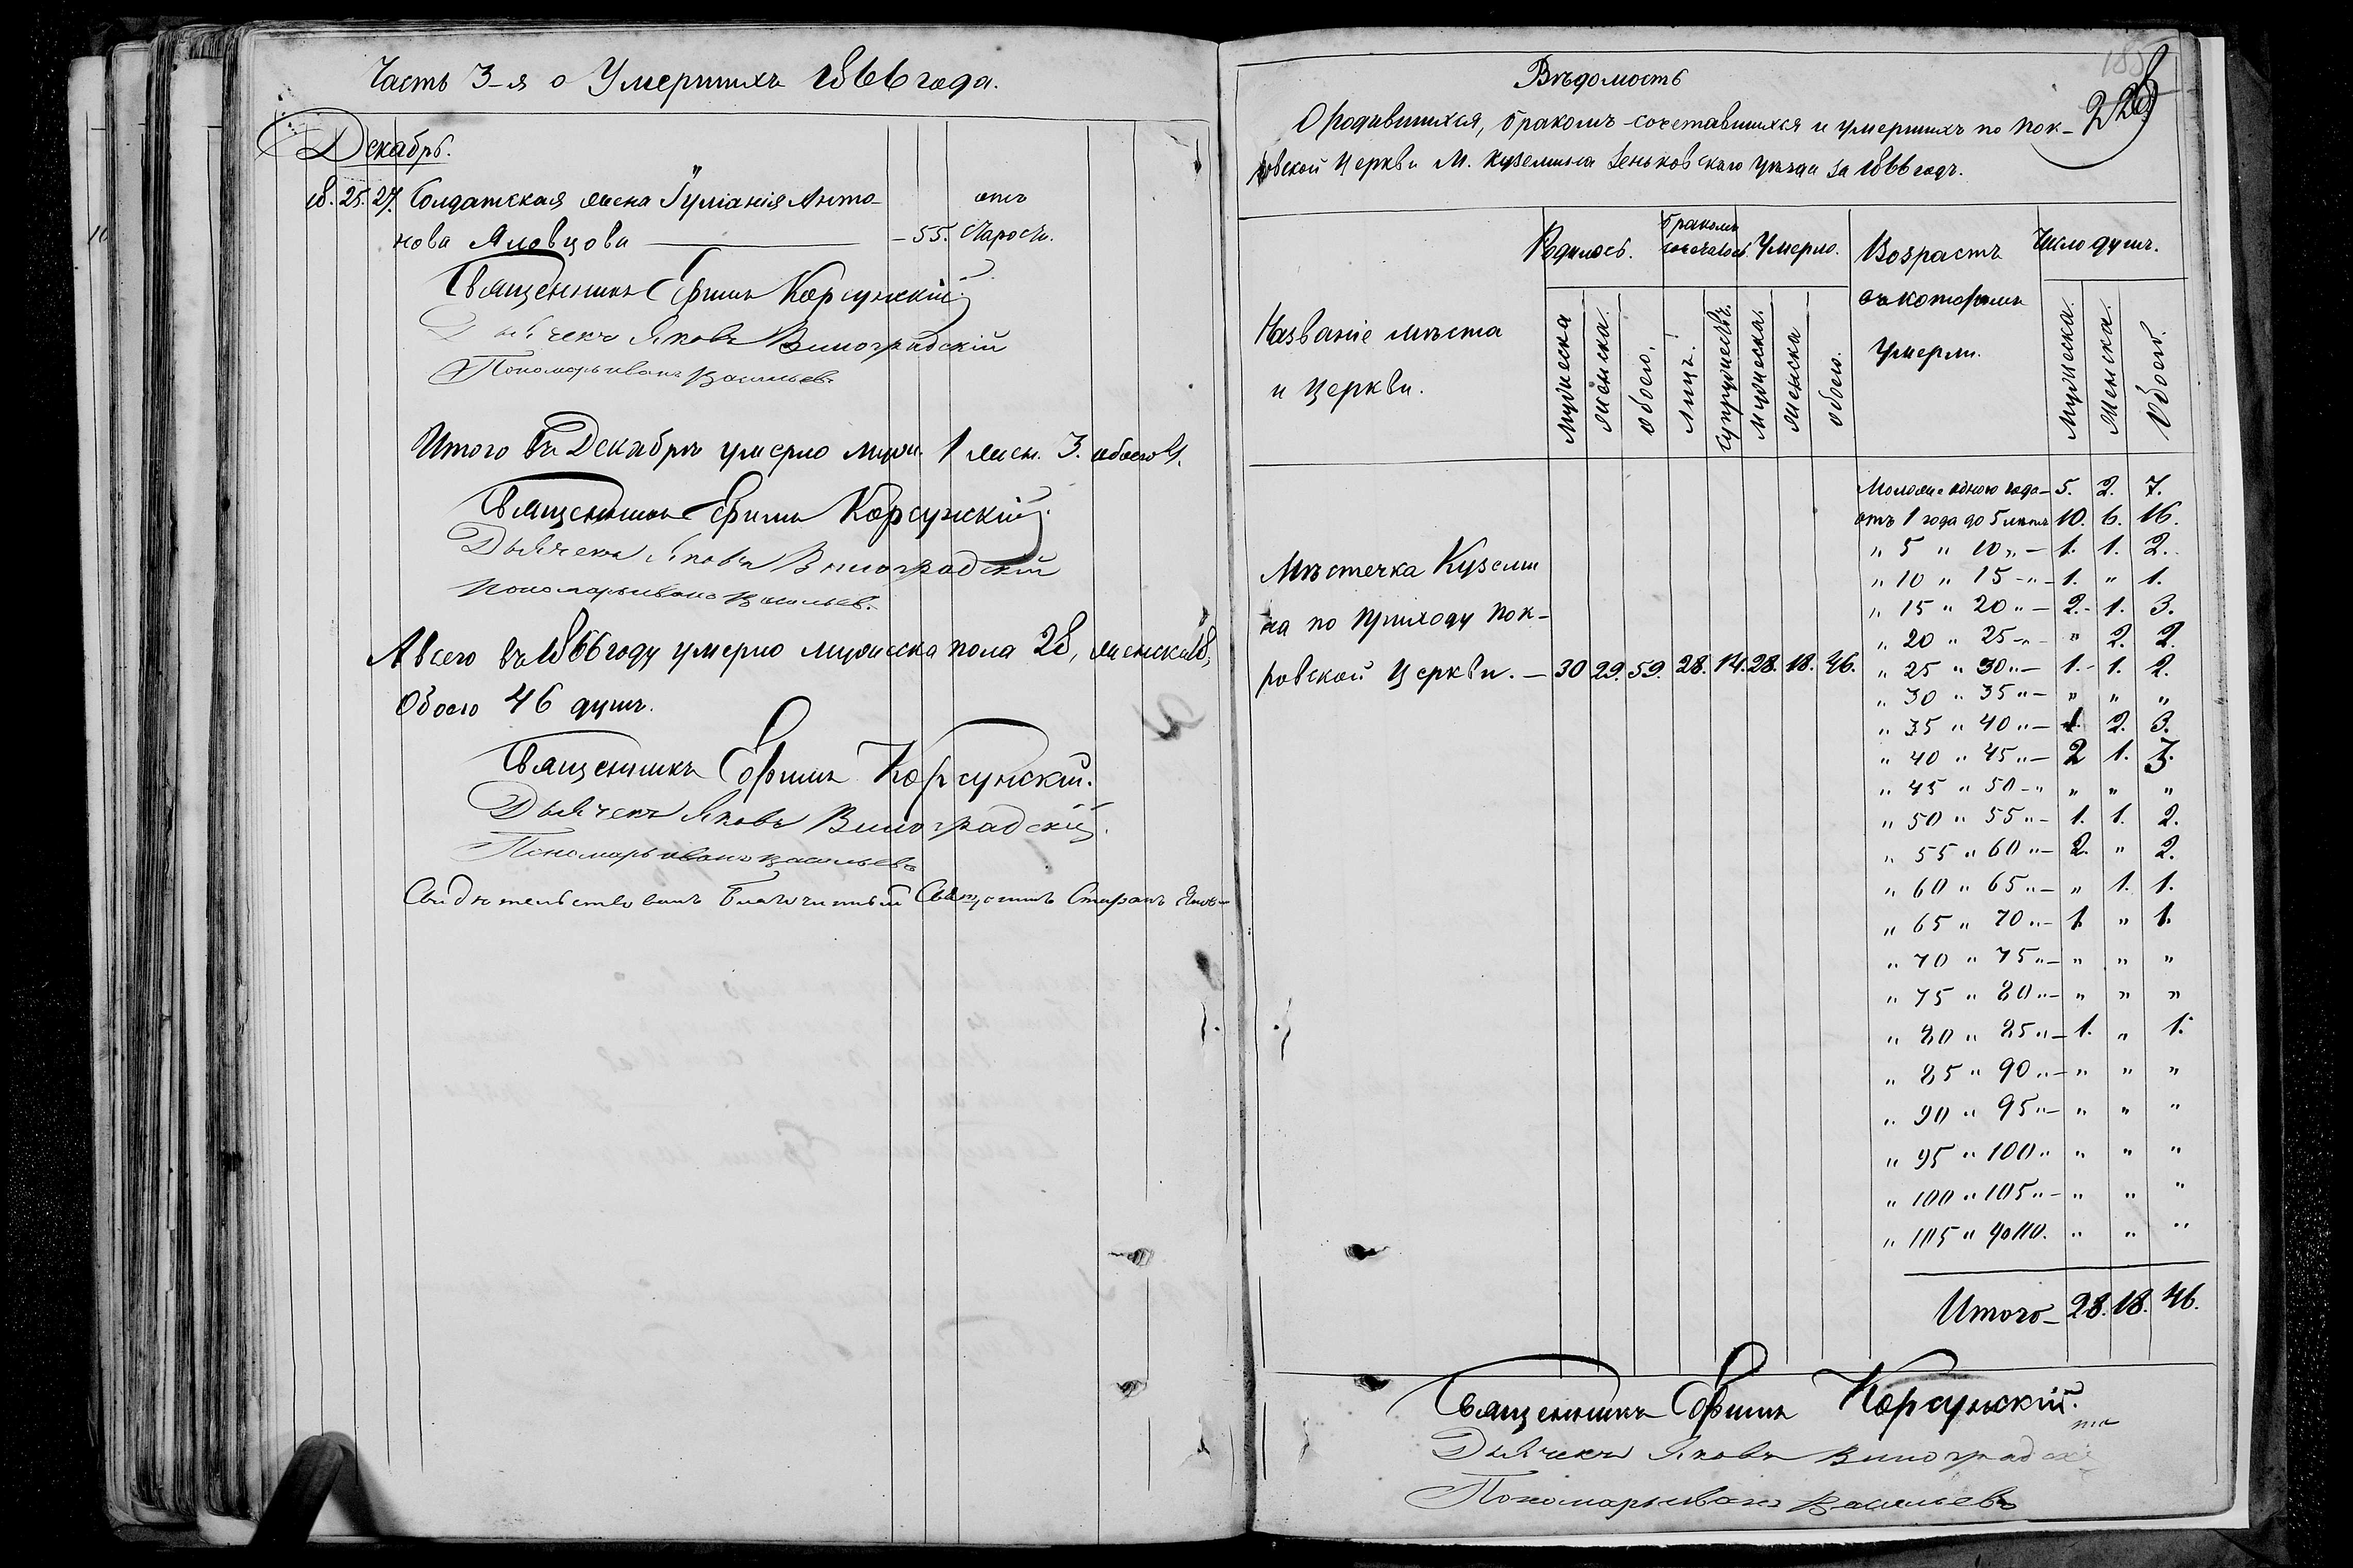 Часть 3-я о Умершихъ 1866 года.
Декабрь.
18. 25. 27. Солдатская жена Іуліанія Анто- отъ
нова Яловцова — 55. Старости.
Священникъ Ефимъ Корсунскій
Дьячекъ Яковъ Виноградскій
Пономарь Иванъ Васильевъ
Итого въ Декабрѣ умерло муж. 1 жен. 3. обоего 4.
Священникъ Ефимъ Корсунскій.
Дьячекъ Яковъ Виноградскій
Пономарь Иванъ Васильев.
А всего въ 1866 году умерло мужеска пола 28, женска 18,
Обоего 46 душъ.
Священникъ Ефимъ Корсунскій.
Дьячекъ Яковъ Виноградскій.
Пономарь Иванъ Васильевъ
Свидѣтельствовалъ Благочинный Священникъ Стефанъ
185
Вѣдомость
О родившихся, бракомъ сочетавшихся и умершихъ по Пок-
ровской Церкви М. Куземина Зеньковскаго уѣзда за 1866 годъ.
Названіе мѣста и церкви.
Родилось.
Бракомъ сочеталось.
Умерло.
Возрастъ въ которомъ Умерли.
Число душъ.
Мужеска Женска. Обоего. Лицъ. Супружествъ. Мужеска. Женска Обоего. Мужеска. Женска. Обоего.
Мѣстечка Куземи
на по приходу Пок-
ровской Церкви. — 30 29. 59. 28. 14. 28. 18. 46.
Моложе одного года — 5. 2. 7.
отъ 1 года до 5 лѣтъ 10. 6. 16.
„ 5 „ 10 „ — 1. 1. 2.
„ 10 „ 15 „ — 1. „ 1.
„ 15 „ 20 „ — 2. 1. 3.
„ 20 „ 25 „ — „ 2. 2.
„ 25 „ 30 „ — 1. 1. 2.
„ 30 „ 35 „ — „ „ „
„ 35 „ 40 „ — 1. 2. 3.
„ 40 „ 45 „ — 2 1. 3.
„ 45 „ 50 „ „ „ „
„ 50 „ 55 „ — 1. 1. 2.
„ 55 „ 60 „ — 2. „ 2.
„ 60 „ 65 „ — „ 1. 1.
„ 65 „ 70 „ — 1. „ 1.
„ 70 „ 75 „ — „ „ „
„ 75 „ 80 „ — „ „ „
„ 80 „ 85 „ — 1. „ 1.
„ 85 „ 90 „ — „ „ „
„ 90 „ 95 „ — „ „ „
„ 95 „ 100 „ „ „ „
„ 100 „ 105 „ — „ „ „
„ 105 „ до 110. „ „ „
Итого — 28. 18. 46.
Священникъ Ефимъ Корсунскій.
Дьячекъ Яковъ Виноградскій
Пономарь Иванъ Васильевъ